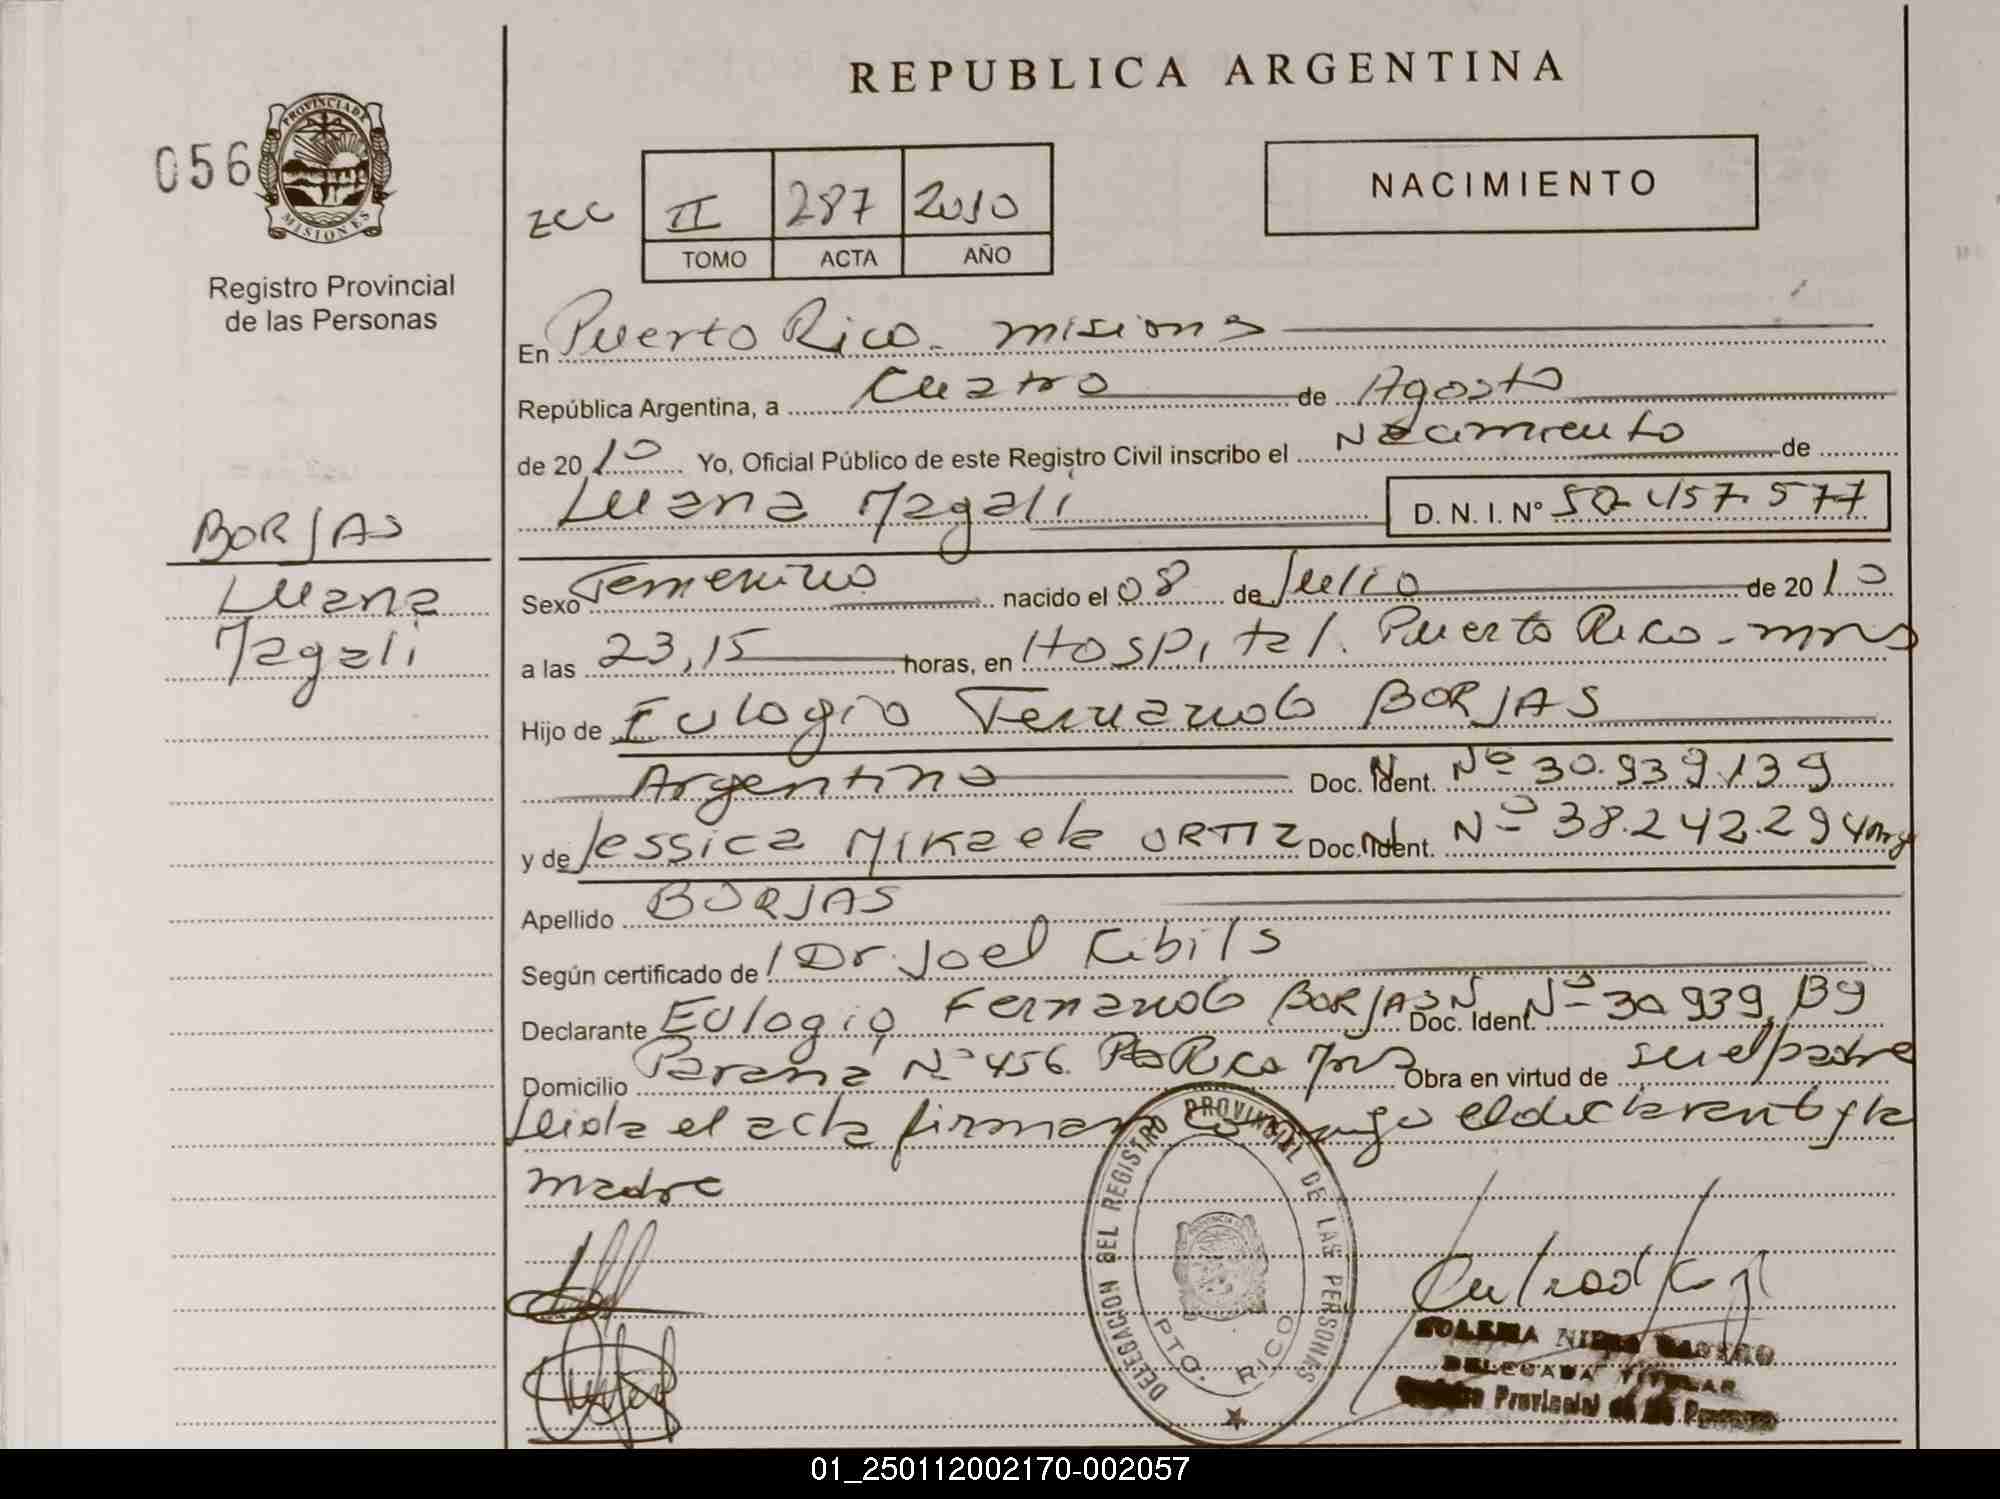 REPUBLICA ARGENTINA
056
PROVINCIA DE
MISIONES
Registro Provincial
de las Personas
NACIMIENTO
II 287 2010
TOMO ACTA AÑO
En Puerto Rico - misiones
República Argentina, a Cuatro de Agosto
de 2010 Yo, Oficial Público de este Registro Civil inscribo el Nacimiento de
Luana Magali D. N. I. Nº 50.457.577
BORJAS
Luana
Magali
Sexo Femenino nacido el 08 de Julio de 2010
a las 23,15 horas, en Hospital. Puerto Rico - mns
Hijo de Eulogio Fernando BORJAS
Argentino Doc. Ident. Nº 30.939.139
y de Jessica Mikaela ORTIZ Doc. Ident. Nº 38.242.294 Arg
Apellido BORJAS
Según certificado de Dr. Joel Cibils
Declarante Eulogio Fernando BORJAS Doc. Ident. Nº 30.939.139
Domicilio Parana Nº 456. Pto Rico Mns Obra en virtud de ser el padre
Leida el acta firman conmigo el declarante y la
madre
DELEGACION DEL REGISTRO PROVINCIAL DE LAS PERSONAS
PTO. RICO
DELEGADA TITULAR
Provincial de las Personas
01_250112002170-002057